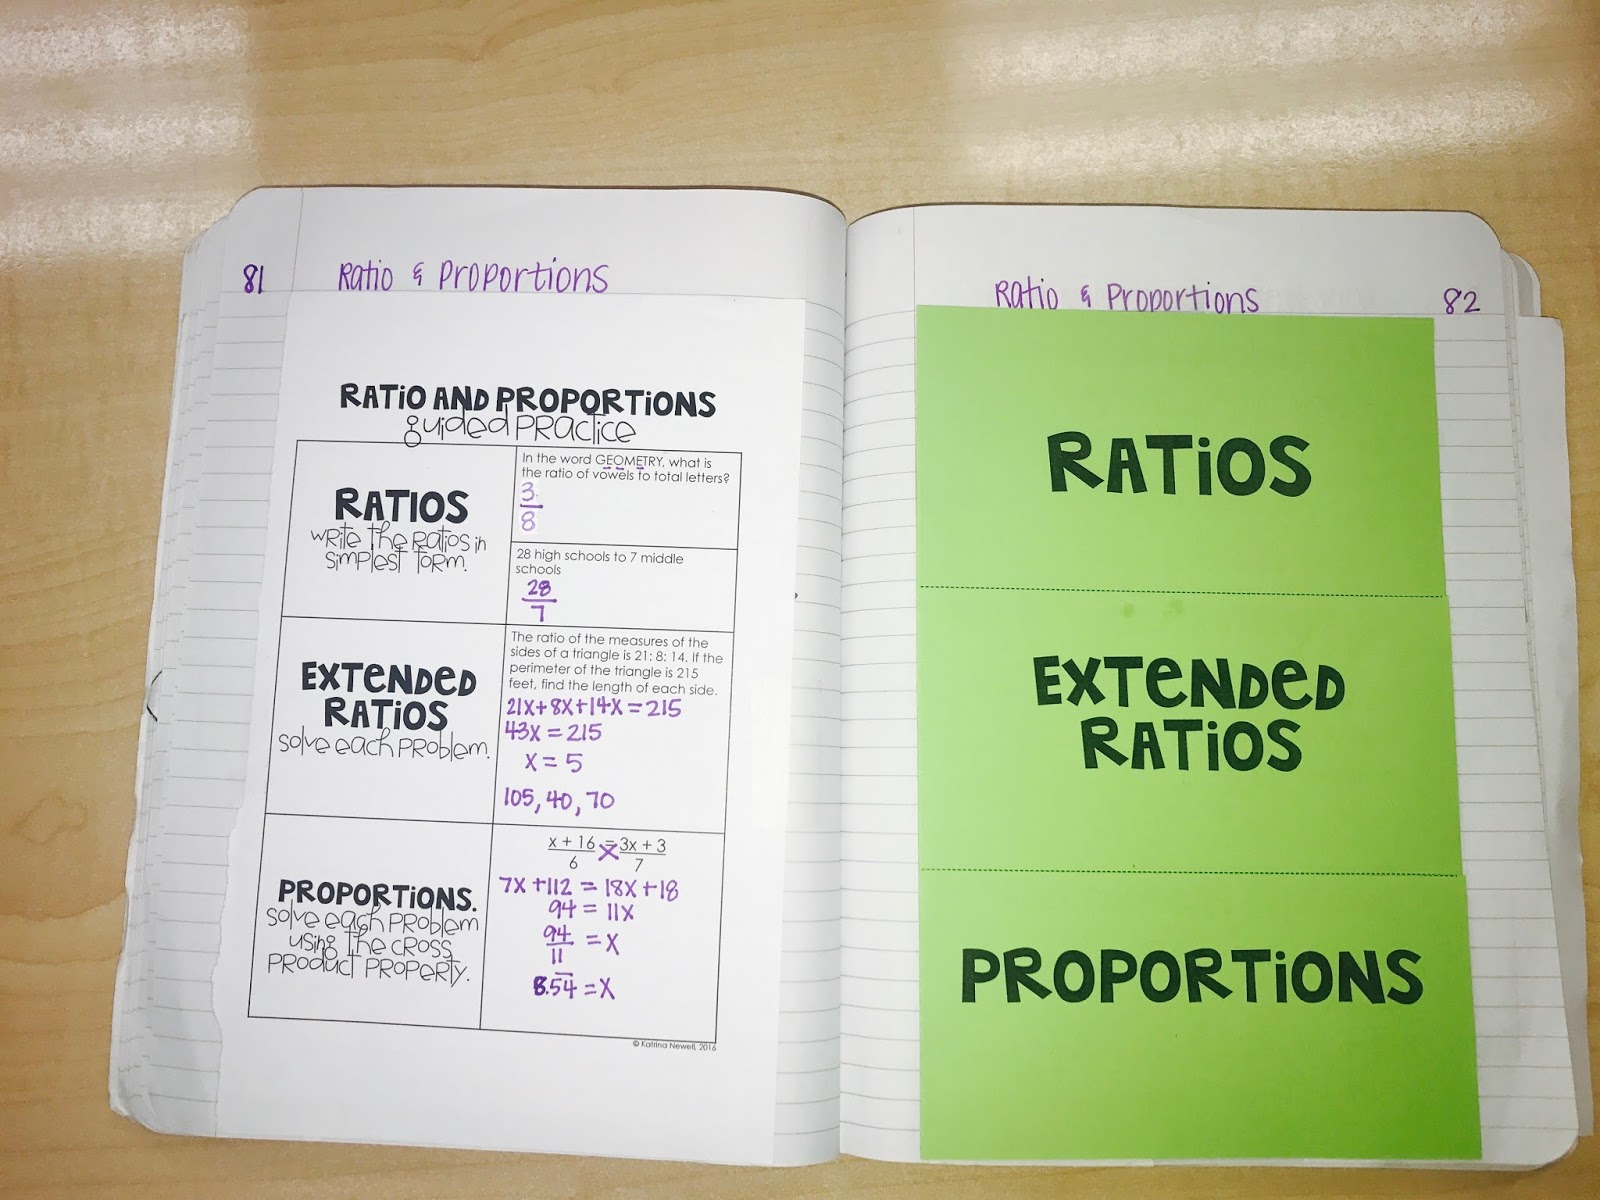 81 Ratio & Proportions
RATIO AND PROPORTIONS
guided practice
RATIOS
write the ratios in
simplest form.
In the word GEOMETRY, what is
the ratio of vowels to total letters?
3
8
28 high schools to 7 middle
schools
28
7
EXTENDED
RATIOS
solve each problem.
The ratio of the measures of the
sides of a triangle is 21: 8: 14. If the
perimeter of the triangle is 215
feet, find the length of each side.
21x+8x+14x=215
43x=215
x=5
105, 40, 70
PROPORTIONS.
solve each problem
using the cross
product property.
x + 16 = 3x + 3
6 7
7x+112 = 18x+18
94 = 11x
94 = x
11
8.5̅4̅ = x
© Katrina Newell, 2016
Ratio & Proportions 82
RATIOS
EXTENDED
RATIOS
PROPORTIONS